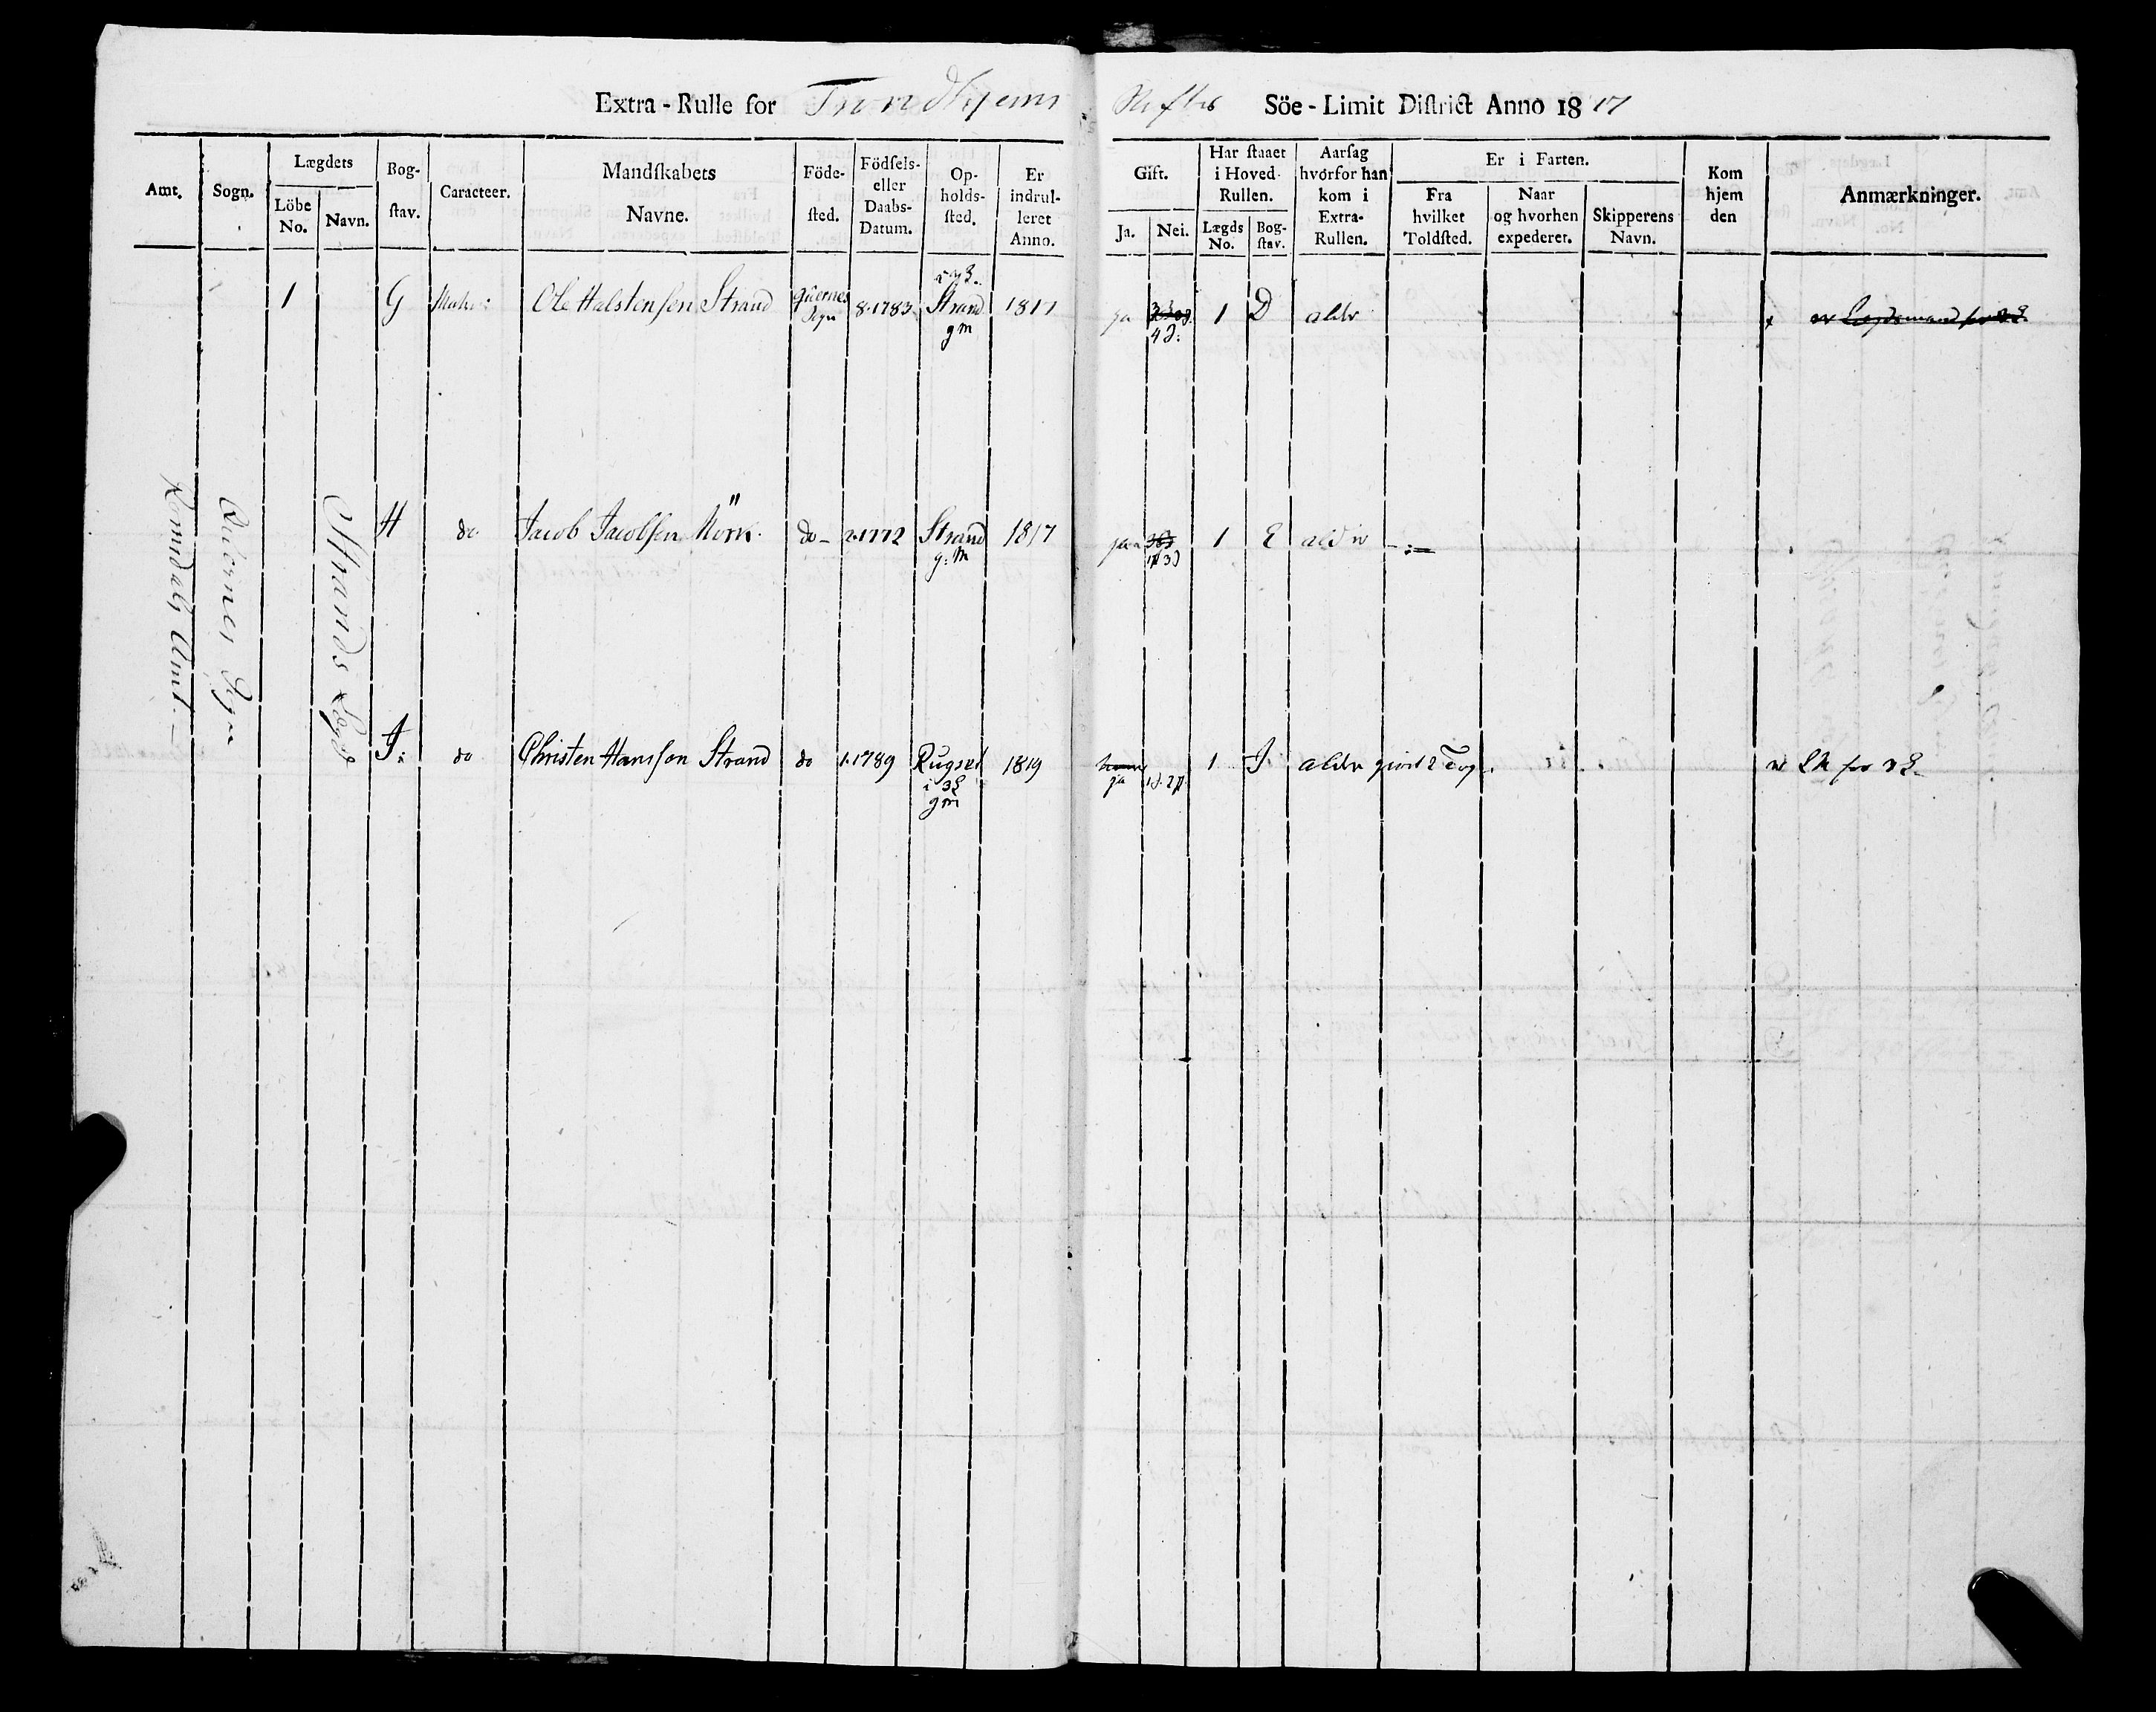 Extra-Rulle for Trondhjems Stifts Söe-Limit District Anno 1817
Amt.
Sogn.
Lægdets
Löbe No.
Navn.
Bogstav.
Caracteer.
Mandskabets Navne.
Födested.
Födsels- eller Daabs-Datum.
Opholdssted.
Er indrulleret Anno.
Gift.
Ja.
Nei.
Har staaet i Hoved-Rullen.
Lægds No.
Bogstav.
Aarsag hvorfor han kom i Extra-Rullen.
Er i Farten.
Fra hvilket Toldsted.
Naar og hvorhen expederet.
Skipperens Navn.
Kom hjem den
Anmærkninger.
Romsdals Amt.
Qvernes Sogn
Strands Lægd
1 G Matr: Ole Halstensen Strand Qvernes Sogn 8.1783 Strand gm 1817 ja 4 d: 1 D alder er Lægdsmand for
H do Jacob Jacobsen Mörk do- 2.1772 Strand g:m 1817 ja 3d 1 E alder
I: do Christen Hansson Strand do 1.1789 Rugset i 3L gm 1819 ja 1 I alder giort 2 Tog. er LM for 3 L